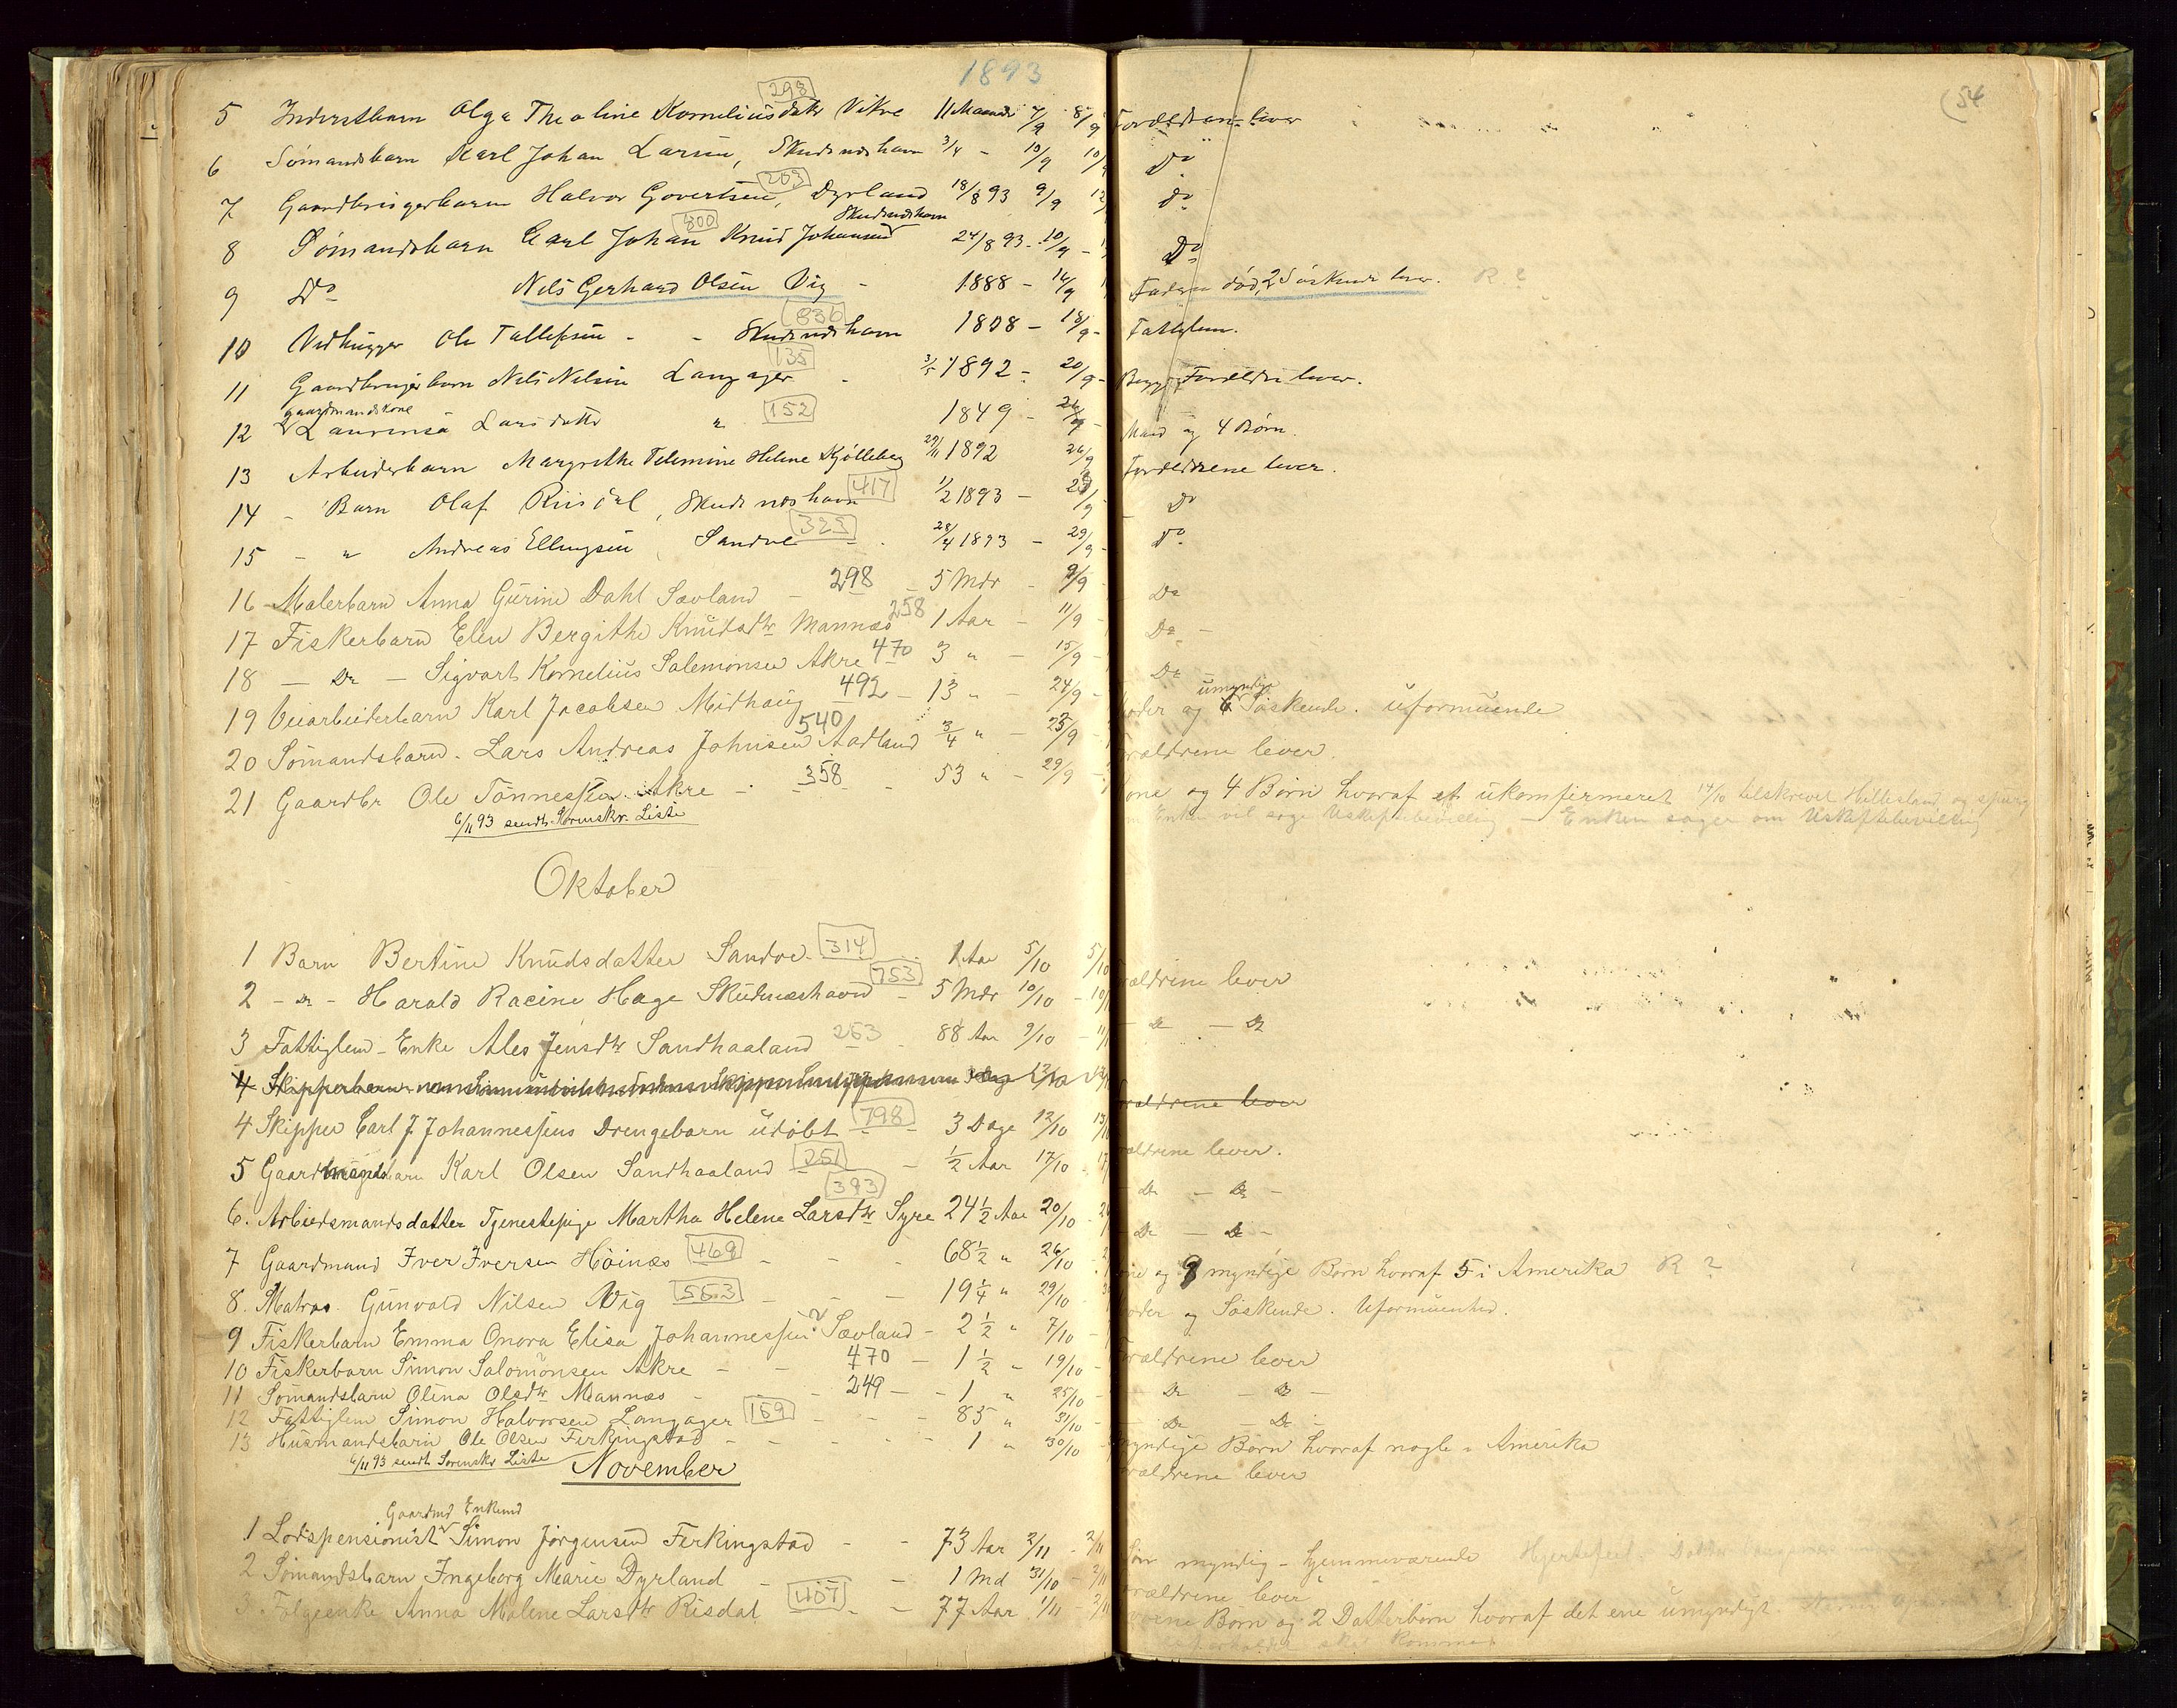 1893
(54
298
5 Inderstbarn Olga Theoline Korneliusdatr Vikre 11 Maaneder 7/9 8/9 Forældrene lever
6 Sömandsbarn Karl Johan Larsen, Skudesneshavn 3/4 - 10/9 Do
263
7 Gaardbrugerbarn Halvor Govertsen, Dyrland 18/8 93 9/9 do
800 Skudesneshavn
8 Sömandsbarn Carl Johan Knud Johansen 24/8 93 - 10/9 - Do
9 Do Nils Gerhard Olsen Vig - 1888 - 14/9 Faderen död, 2 Söskende lever. R?
836
10 Vedhugger Ole Tollefsen - - Skudesneshavn 1808 - 18/9 - Fattiglem.
135
11 Gaardbrugerbarn Nils Nilsen Langager - 1892 - 20/9 - Begge Forældre lever.
gaardmandskone
12 Laurensa Larsdatter " 152 1849 - Mand og 4 Börn.
13 Arbeiderbarn Margrethe Telemine Helene Kjölleberg 27/11 1892 26/9 Forældrene lever.
14 - Barn Olaf Riisdal, Skudesneshavn 417 1/2 1893 - Do
15 - " Andreas Ellingsen, Sandve 323 - 28/4 1893 - 29/9 - Do
16 - Malerbarn Anna Gurine Dahl Sævland - 298 - 5 Mdr - 9/9 - Do
17 Fiskerbarn Elen Bergithe Knudsdtr Mannæs 258 1 Aar - 11/9 - Do -
18 - Do - Sigvart Kornelius Salemonsen Akre 470 3 " - 15/9 - Do
umyndige
19 Veiarbeiderbarn Karl Jacobsen Midhaug 492 - 13 " - 24/9 - oder og 6 Söskende. uformuende
540
20 Sömandsbarn. Lars Andreas Johnsen Aadland 3/4 " - 25/9 - rældrene lever.
21 Gaardbr Ole Tönnessen. Akre - - 358 - 53 " - 29/9 - one og 4 Börn hvoraf et ukomfirmeret 14/10 tilskrevet Hillesland og spurgt
6/11 93 sendt. Sorenskr. Liste Enken vil søge Uskiftebevilling - Enken søger om Uskiftebevilling
Oktober
1 Barn Bertine Knudsdatter Sandve 314 - 1 Aar 5/10 5/10 rældrene lever
2 - Do - Harald Racine Hage Skudesneshavn 753 - 5 Mdr 10/10 - - Do - Do
3 Fattiglem - Enke Ales Jensdtr Sandhaaland 263 - 88 Aar 9/10 -
4 Skipperbarn rældrene lever
4 Skipper Carl J Johannessens Drengebarn udöbt 798 - 3 Dage 12/10 13/10 ældrene lever.
5 Gaardmandsbarn Karl Olsen Sandhaaland 261 - 1/2 Aar 17/10 - Do - Do -
393
6. Arbeidsmandsdatter Tjenestepige Martha Helene Larsdtr Syre 24 1/2 Aar 20/10 - Do - Do -
7 Gaardmand Iver Iversen Höinæs 469 - - - 68 1/2 " 26/10 - one og 9 myndige Börn hvoraf 5 i Amerika R?
8. Matros. Gunvald Nilsen Vig 563 - - - 19 1/4 " 29/10 - oder og Söskende. Uformuenhed.
9 Fiskerbarn Emma Onora Elisa Johannessen ? Sævland - 2 1/2 " 7/10 - rældrene lever
10 Fiskerbarn Simon Salomonsen Akre - - 470 - 1 1/2 " 19/10 - Do - Do -
11 Sömandsbarn Olina Olsdtr Mannæs - - 249 - - 1 " 25/10 - Do - Do -
12 Fattiglem Simon Halvorsen Langager 159 - - - 85 " 31/10 - myndige Börn hvoraf nogle i Amerika
13 Husmandsbarn Ole Olsen Ferkingstad - - - - 1 " 30/10 - rældrene lever
6/11 93 sendt Sorenskr Liste
November
Gaardmd Enkemd
1 Lodspensionist Simon Jörgensen Ferkingstad - - 73 Aar 2/11 - 2/11 Sön myndig - hjemmeværende
2 Sömandsbarn Ingeborg Marie Dyrland - - 1 Md 31/10 - 2/11 rældrene lever
3 Fölgeenke Anna Malene Larsdtr Risdal 407 - - 77 Aar 1/11 - 2/11 Börn og 2 Datterbörn hvoraf det ene umyndigt